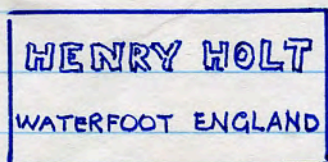 HENRY HOLT
WATERFOOT ENGLAND